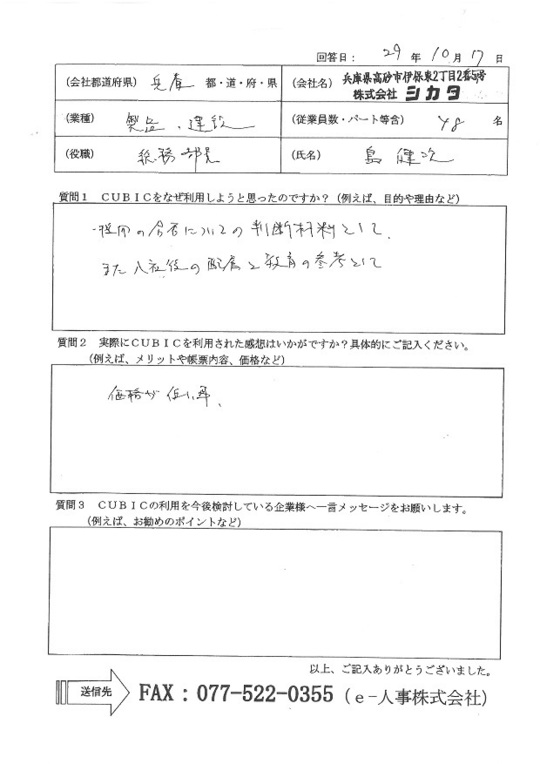 回答日： 29 年 10 月 17 日
（会社都道府県） 兵庫 都・道・府・県
（会社名） 兵庫県高砂市伊保東2丁目2番5号
株式会社 シカタ
（業種） 製造、建設
（従業員数・パート等含） 48 名
（役職） 総務部長
（氏名） 島 健次
質問１ ＣＵＢＩＣをなぜ利用しようと思ったのですか？（例えば、目的や理由など）
・採用の合否についての判断材料として、
また入社後の配属と教育の参考として
質問２ 実際にＣＵＢＩＣを利用された感想はいかがですか？具体的にご記入ください。
（例えば、メリットや帳票内容、価格など）
価格が低い事、
質問３ ＣＵＢＩＣの利用を今後検討している企業様へ一言メッセージをお願いします。
（例えば、お勧めのポイントなど）
以上、ご記入ありがとうございました。
送信先
FAX：077-522-0355（ｅ−人事株式会社）